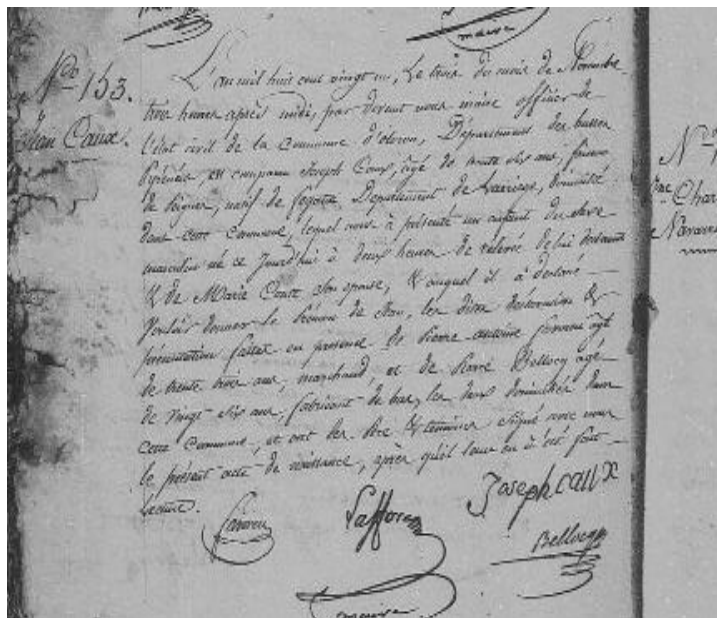 maire
No 153.
Jean Caux.
L'an mil huit cent vingt un, Le trois du mois de Novembre
trois heures après midi, par devant nous maire officier de
l'état civil de la commune d'oloron, Département des basses
Pyrénées, est comparu Joseph Caux, âgé de trente six ans,
de peignes, natif de Département de Larriège, domicilié
dans cette Commune, lequel nous à présenté un enfant du sexe
masculin né ce Jourd'hui à deux heures de relevée de lui déclarant
& de Marie son épouse, & auquel il à déclaré
vouloir donner le prénom de Jean, les dites déclaration &
présentation faites en presence de Pierre antoine âgé
de trente trois ans, marchand, et de Bellocq agé
de vingt six ans, fabricant de bas, les deux domiciliés dans
cette Commune, et ont les père & témoins signé avec nous
le présent acte de naissance, après qu'il leur en à été fait
Lecture.
Joseph caux
Bellocq
maire
No
Char
Navarre